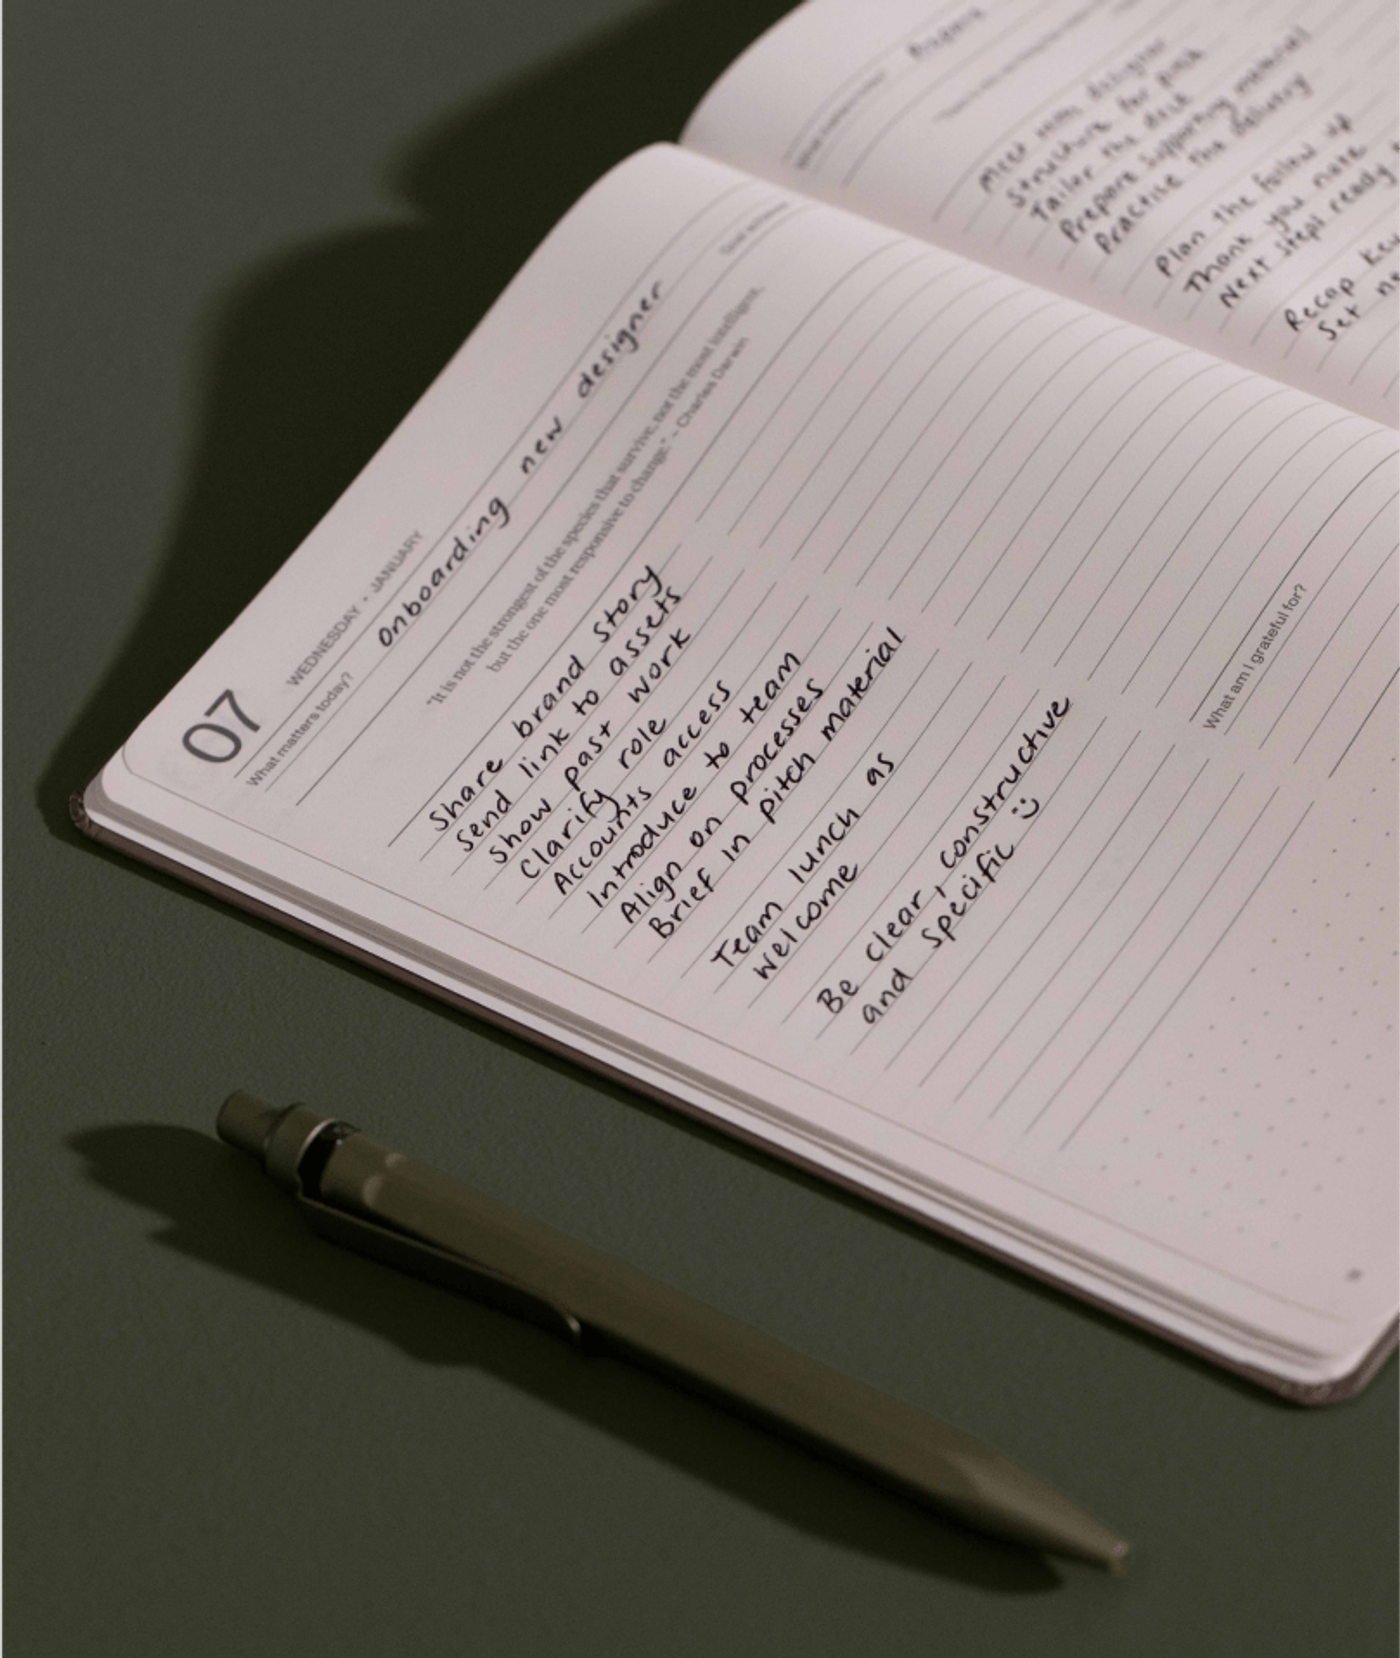 07
WEDNESDAY • JANUARY
What matters today?
onboarding new designer
"It is not the strongest of the species that survive, not the most intelligent,
but the one most responsive to change." – Charles Darwin
Share brand story
Send link to assets
Show past work
Clarify role
Accounts access
Introduce to team
Align on processes
Brief in pitch material
Team lunch as
welcome
Be clear, constructive
and specific :)
What am I grateful for?
Meet with designer
Structure for pitch
Tailor the deck
Prepare supporting material
Practise the delivery
Plan the follow up
Thank you note
Next steps ready
Recap
Set